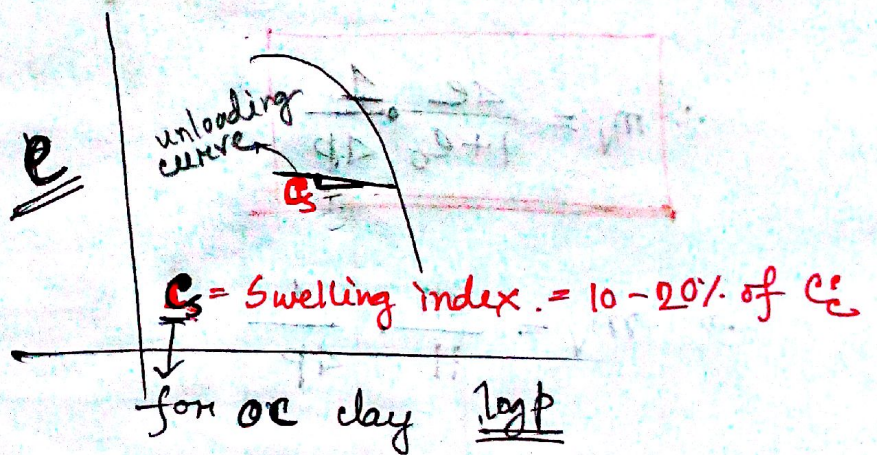 unloading
curve
e
Cs
Cs = Swelling index. = 10-20% of Cc
for OC clay log p